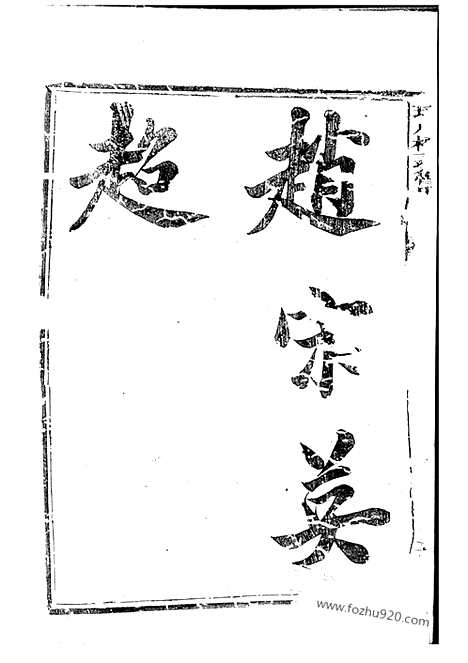 趙宋英
超
www.fozhu920.com